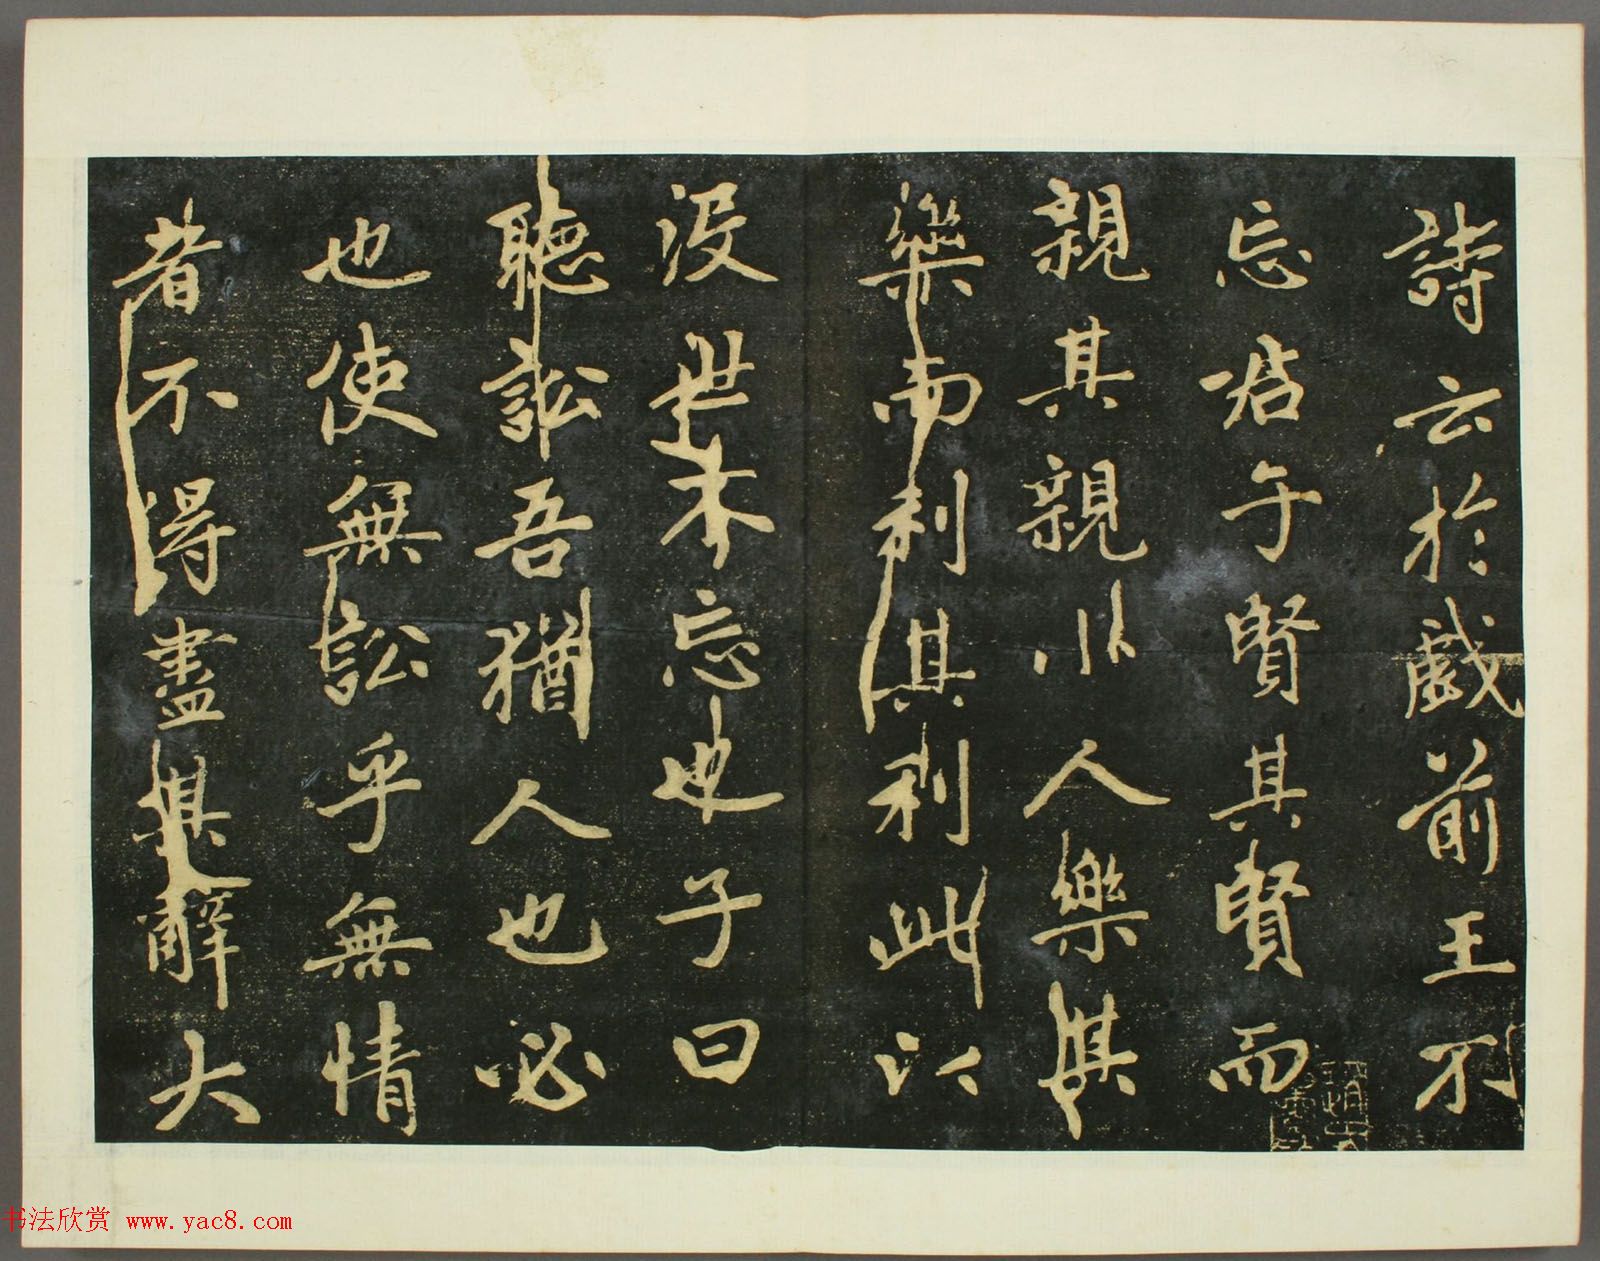 詩云於戲前王不
忘君子賢其賢而
親其親小人樂其
樂而利其利此以
沒世不忘也子曰
聽訟吾猶人也必
也使無訟乎無情
者不得盡其辭大
书法欣赏 www.yac8.com